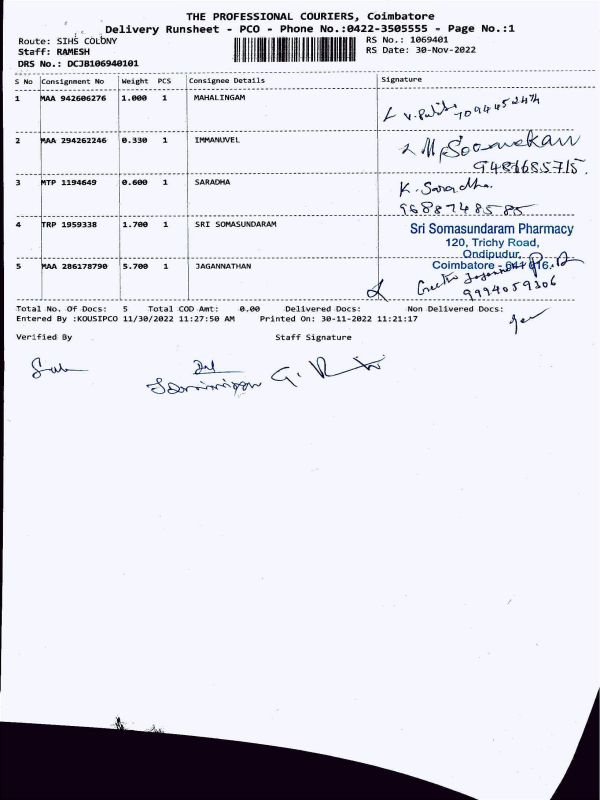 THE PROFESSIONAL COURIERS, Coimbatore
Delivery Runsheet - PCO - Phone No.:0422-3505555 - Page No.:1
Route: SIHS COLONY RS No.: 1069401
Staff: RAMESH RS Date: 30-Nov-2022
DRS No.: DCJB106940101
S No Consignment No Weight PCS Consignee Details Signature
1 MAA 942606276 1.000 1 MAHALINGAM
2 MAA 294262246 0.330 1 IMMANUVEL
9486685715.
3 MTP 1194649 0.600 1 SARADHA K. Saradha.
9688748585
4 TRP 1959338 1.700 1 SRI SOMASUNDARAM Sri Somasundaram Pharmacy
120, Trichy Road,
Ondipudur,
5 MAA 286178790 5.700 1 JAGANNATHAN Coimbatore - 641 016.
9994059306
Total No. Of Docs: 5 Total COD Amt: 0.00 Delivered Docs: Non Delivered Docs:
Entered By :KOUSIPCO 11/30/2022 11:27:50 AM Printed On: 30-11-2022 11:21:17
Verified By Staff Signature